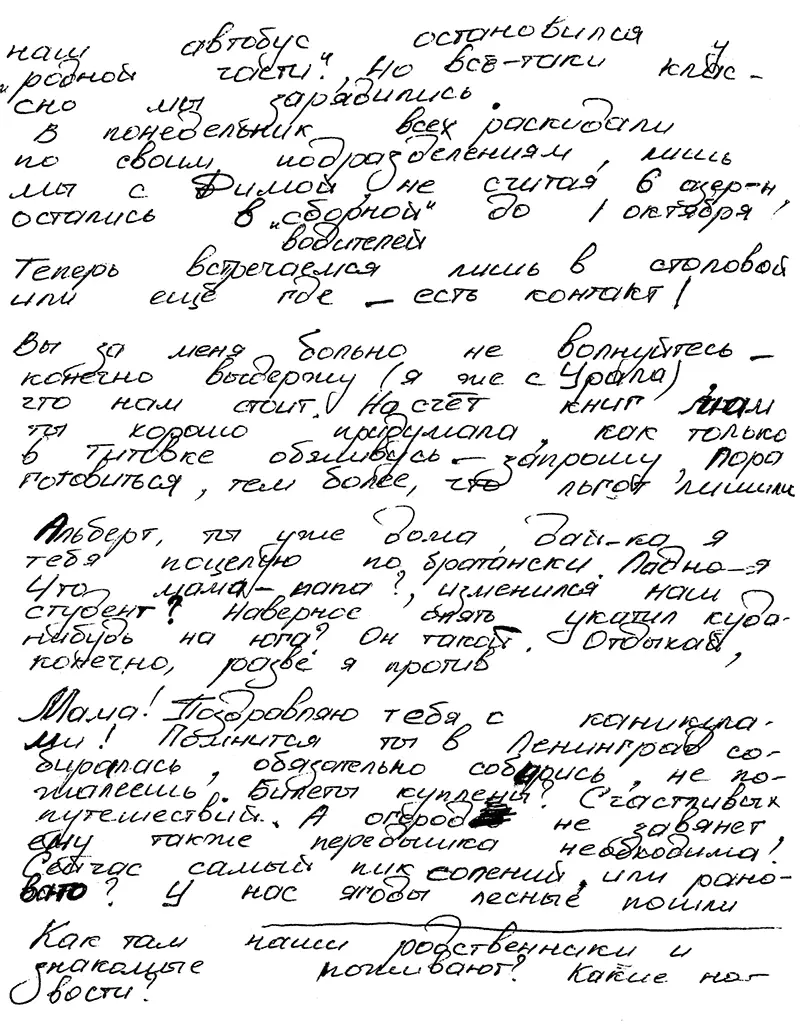 наш автобус остановился у
"родной части". Но всё-таки клас-
сно мы зарядились.
В понедельник всех раскидали
по своим подразделениям, лишь
мы с Димой, не считая 6 азер-н,
остались в "сборной" до 1 октября!
водителей
Теперь встречаемся лишь в столовой
или ещё где – есть контакт!
Вы за меня больно не волнуйтесь –
конечно выдержу (я же с Урала)
что нам стоит. Насчёт книг мам
ты хорошо придумала, как только
в Титовке обживусь – запрошу, Пора
готовиться, тем более, что льгот лишили
Альберт, ты уже дома, дай-ка я
тебя поцелую по братански. Ладно – я
Что мама – папа?, изменился наш
студент? Наверное опять укатил куда-
нибудь на юга? Он такой. Отдыхай,
конечно, разве я против
Мама! Поздравляю тебя с каникула-
ми! Помнится ты в Ленинград со-
биралась, обязательно соберись, не по-
жалеешь. Билеты куплены? Счастливых
путешествий. А огород не завянет,
ему также передышка необходима!
Сейчас самый пик солений, или рано-
вато? У нас ягоды лесные пошли
Как там наши родственники и
знакомые поживают? Какие но-
вости?